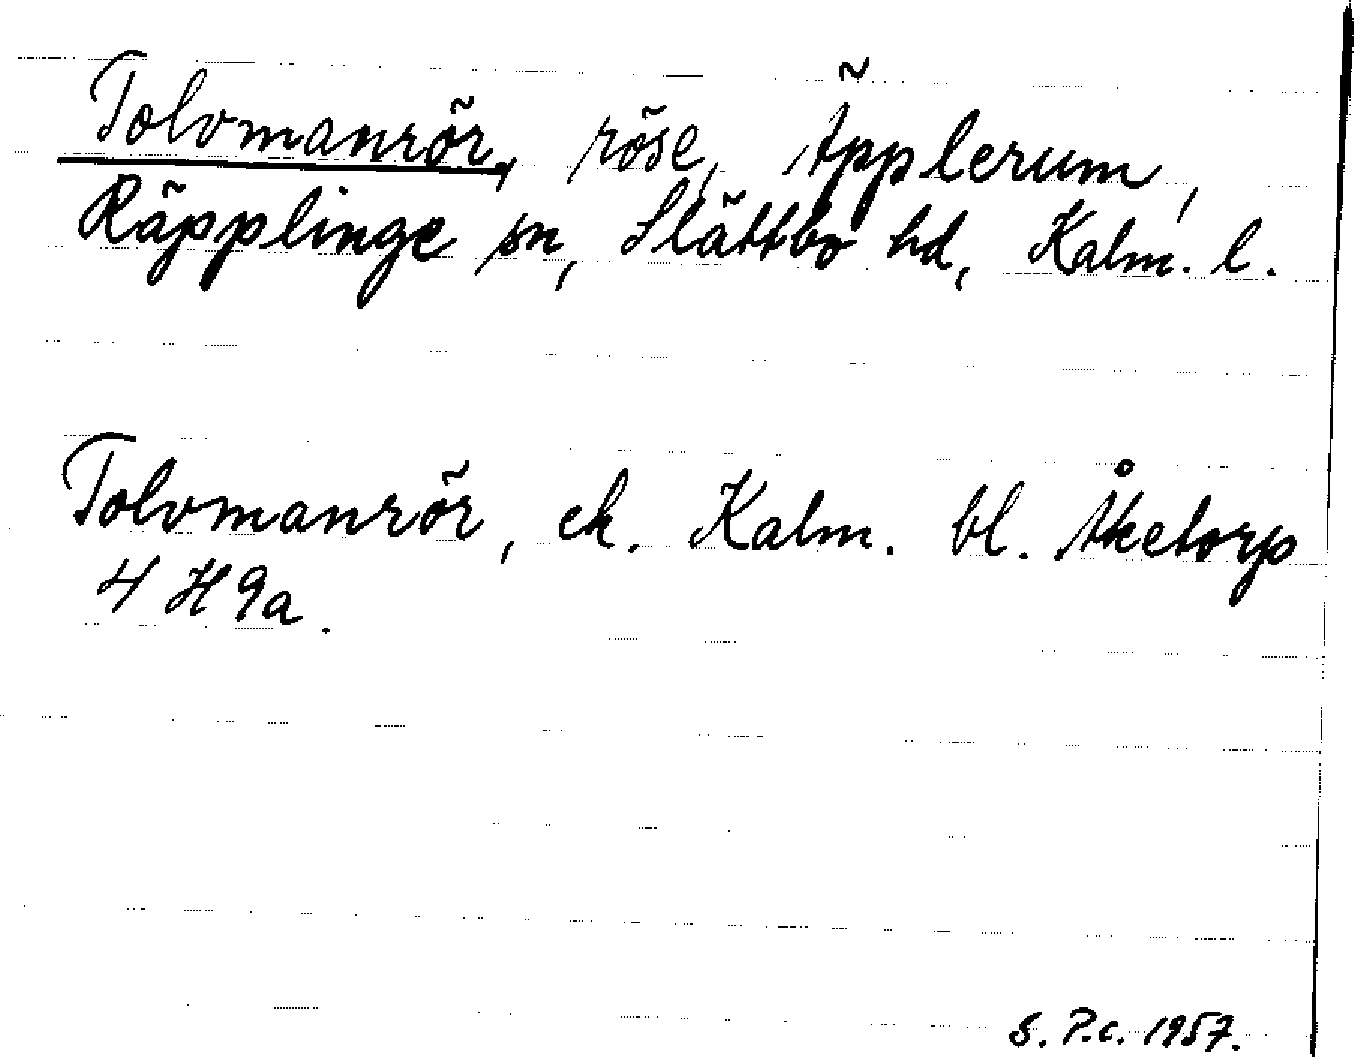 Tolvmanrör, röse, Äpplerum,
Räpplinge sn, Slättbo hd, Kalm. l.
Tolvmanrör, ek. Kalm. bl. Åketorp
4 H 9a.
S. P.c. 1957.